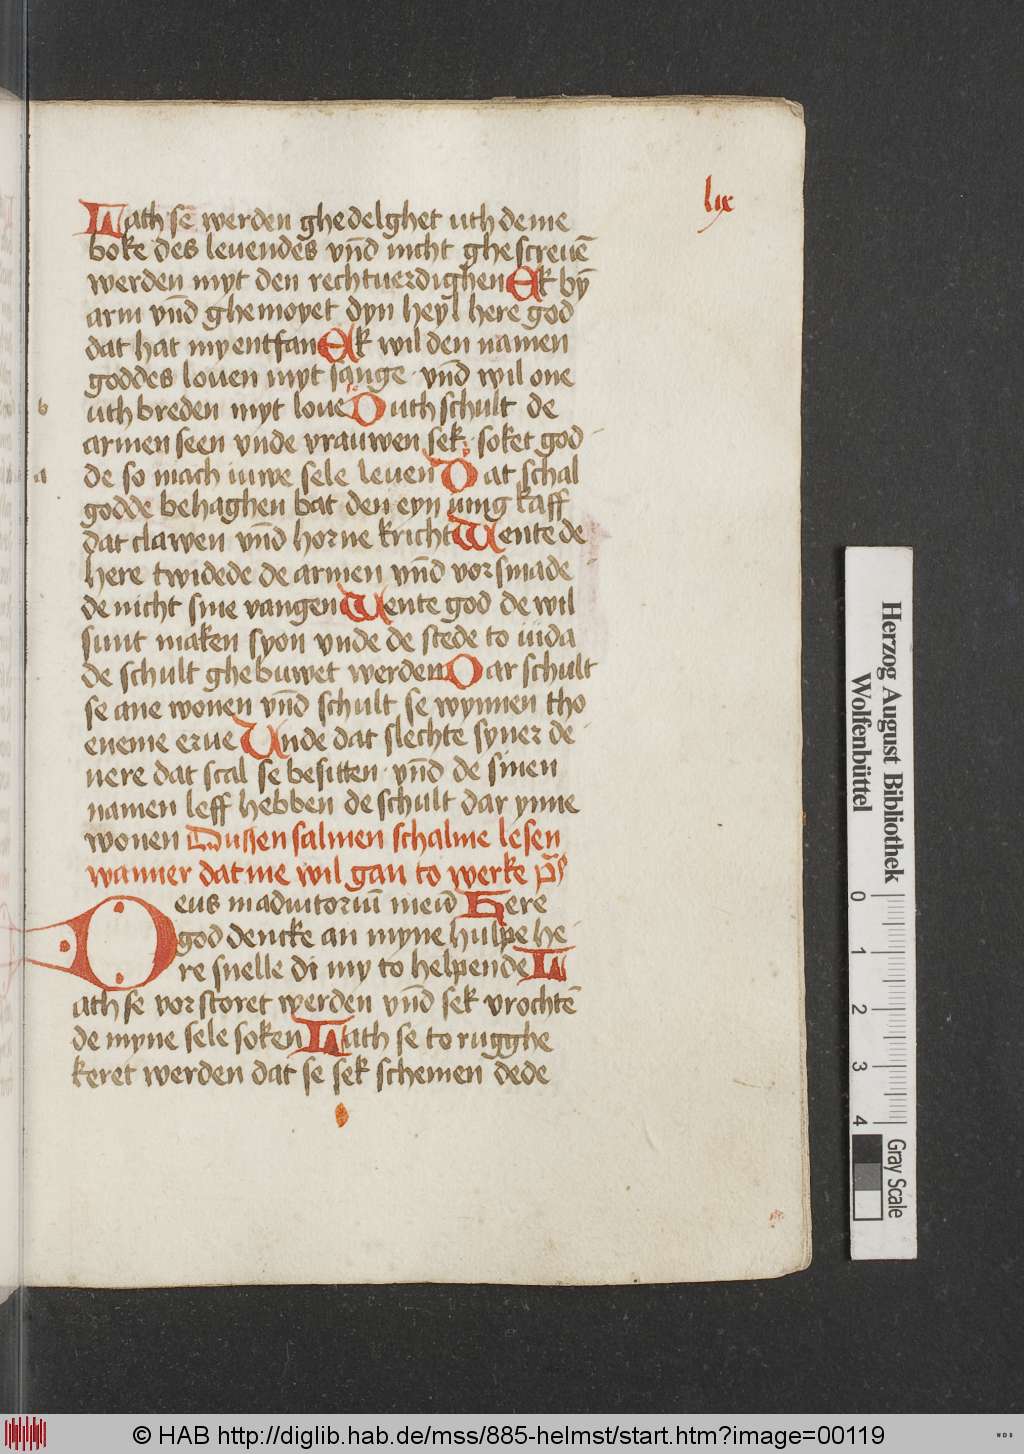 lix
Lath sē werden ghedelghet uth deme
boke des levendes vn̄d nicht ghescreuē
werden myt den rechtuerdighen Ek bȳ
arm vn̄d ghemoyet dyn heyl here god
dat hat my entfan Ek wil den namen
goddes louen myt sange · vn̄d wil one
uth breden myt loue Duth schult de
armen seen vnde vrauwen sek · soket god
b
de so mach iuwe sele leuen Dat schal
a
godde behaghen bat den eyn iung kaff
dat clawen vn̄d horne kricht Wente de
here twidede de armen vn̄d vorsmade
de nicht sine vangen Wente god de wil
sunt maken syon vnde de stede to iuda
de schult ghebuwet werden Dar schult
se ane wonen vn̄d schult se wynnen tho
eneme erue Unde dat slechte syner de
nere dat scal se besitten · vn̄d de sinen
namen leff hebben de schult dar ynne
wonen Dussen salmen schalme lesen
wanner datme wil gan to werke p̄s
Deus in adiutoriū meū Here
god dencke an myne hulpe he
re snelle di my to helpende L
ath se vorstoret werden vn̄d sek vrochtē
de myne sele soken Lath se to rugghe
keret werden dat se sek schemen dede
Herzog August Bibliothek
Wolfenbüttel
0 1 2 3 4
Gray Scale
© HAB http://diglib.hab.de/mss/885-helmst/start.htm?image=00119